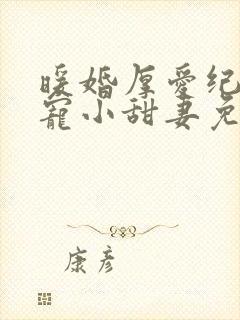 暖婚厚爱纪
宠小甜妻免
康彦